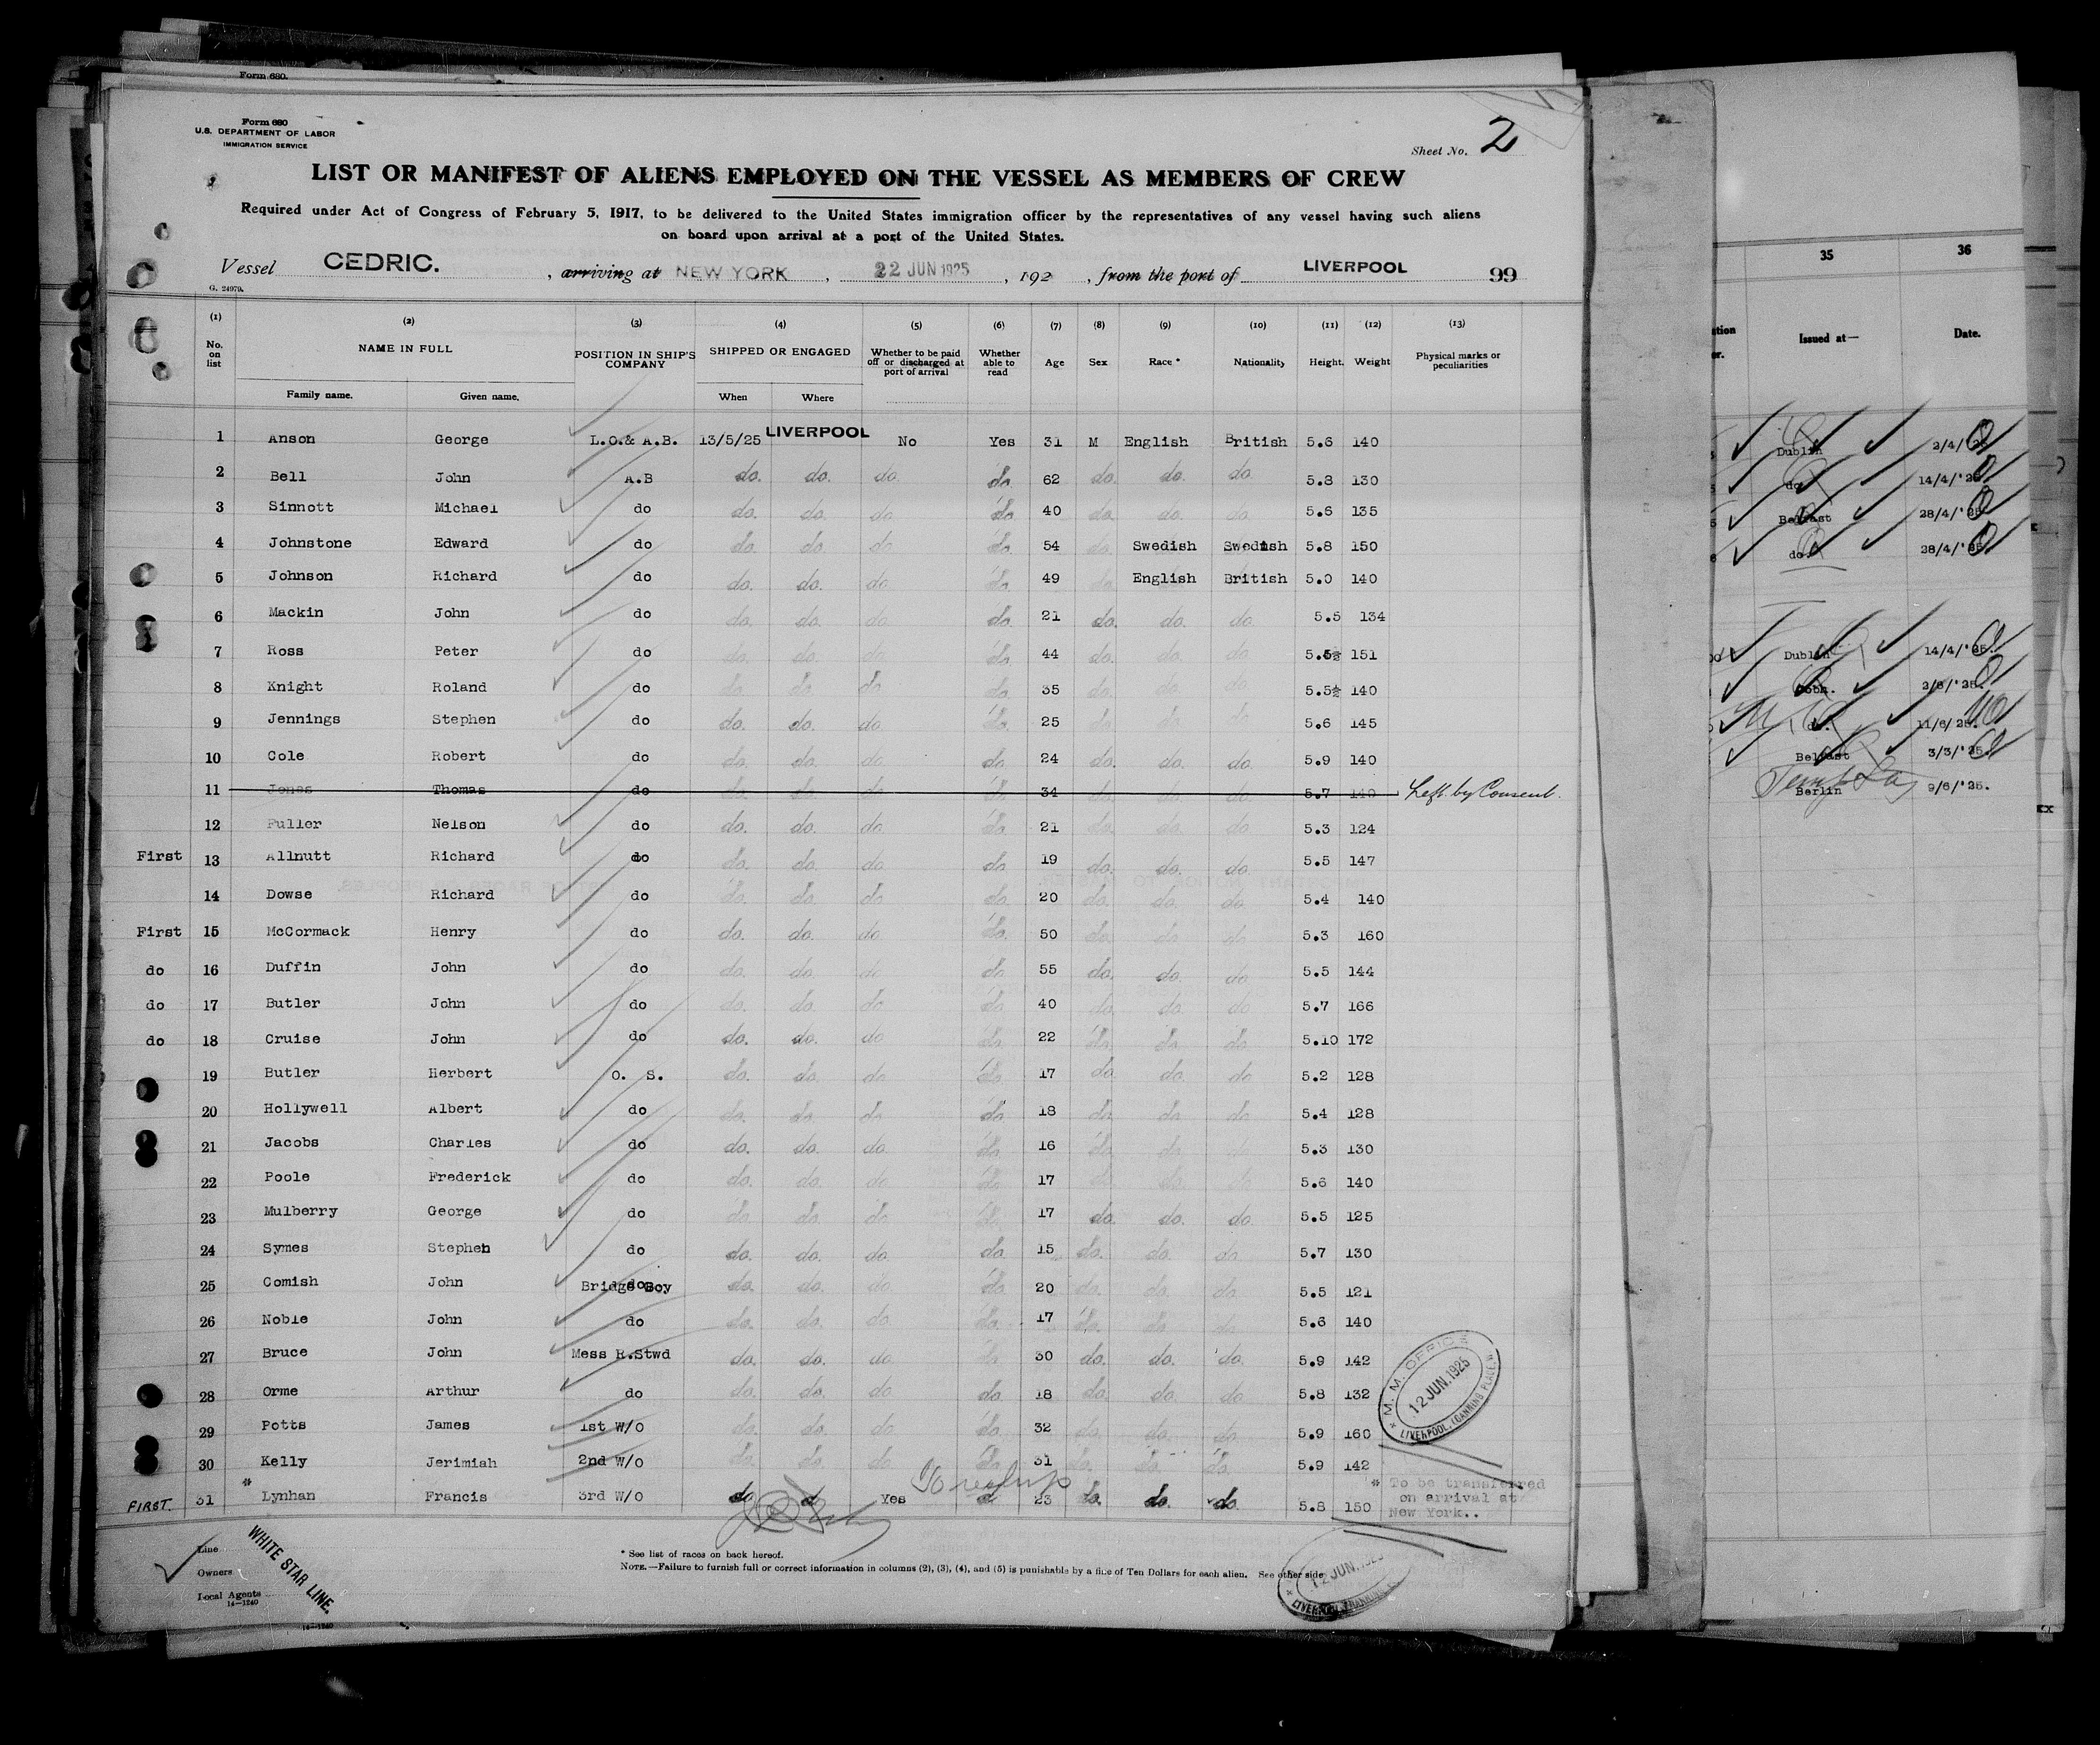 Form 680.
Form 680
U.S. DEPARTMENT OF LABOR
IMMIGRATION SERVICE
Sheet No. 2
LIST OR MANIFEST OF ALIENS EMPLOYED ON THE VESSEL AS MEMBERS OF CREW
Required under Act of Congress of February 5, 1917, to be delivered to the United States immigration officer by the representatives of any vessel having such aliens
on board upon arrival at a port of the United States.
Vessel CEDRIC. , arriving at NEW YORK , 22 JUN 1925 , 192 , from the port of LIVERPOOL 99
G. 24979.
(1) (2) (3) (4) (5) (6) (7) (8) (9) (10) (11) (12) (13)
No. on list NAME IN FULL POSITION IN SHIP'S COMPANY SHIPPED OR ENGAGED Whether to be paid off or discharged at port of arrival Whether able to read Age Sex Race * Nationality Height. Weight Physical marks or peculiarities
Family name. Given name. When Where
1 Anson George L.O.& A.B. 13/5/25 LIVERPOOL No Yes 31 M English British 5.6 140
2 Bell John A.B do. do. do. do. 62 do. do. do 5.8 130
3 Sinnott Michael do do. do. do do 40 do. do. do. 5.6 135
4 Johnstone Edward do do. do. do do. 54 do Swedish Swedish 5.8 150
5 Johnson Richard do do. do. do. do. 49 do English British 5.0 140
6 Mackin John do do. do. do. do. 21 do. do. do. 5.5 134
7 Ross Peter do do. do. do. do. 44 do. do. do. 5.5½ 151
8 Knight Roland do do. do. do. do. 35 do. do. do. 5.5½ 140
9 Jennings Stephen do do. do. do. do. 25 do. do. do 5.6 145
10 Cole Robert do do. do. do. do 24 do. do. do. 5.9 140
11 Jones Thomas do do. do. do do. 34 do. do. do 5.7 140 Left by Consent.
12 Fuller Nelson do do. do. do. do. 21 do. do. do 5.3 124
First 13 Allnutt Richard do do. do. do. do 19 do. do. do. 5.5 147
14 Dowse Richard do do. do. do. do 20 do. do. do. 5.4 140
First 15 McCormack Henry do do. do. do do. 50 do. do do 5.3 160
do 16 Duffin John do do. do. do do. 55 do. do. do 5.5 144
do 17 Butler John do do. do. do. do 40 do. do. do 5.7 166
do 18 Cruise John do do. do. do do. 22 do. do. do 5.10 172
19 Butler Herbert O. S. do. do. do do. 17 do. do. do 5.2 128
20 Hollywell Albert do do. do. do. do 18 do. do. do. 5.4 128
21 Jacobs Charles do do. do. do. do. 16 do. do do 5.3 130
22 Poole Frederick do do. do. do. do. 17 do do. do 5.6 140
23 Mulberry George do do. do. do. do. 17 do. do. do. 5.5 125
24 Symes Stephen do do. do. do. do. 15 do. do. do. 5.7 130
25 Comish John Bridge Boy do. do. do do. 20 do. do. do. 5.5 121
26 Noble John do do. do. do. do. 17 do. do. do. 5.6 140
27 Bruce John Mess R.Stwd do. do. do do 30 do. do. do. 5.9 142
28 Orme Arthur do do. do. do do. 18 do. do. do 5.8 132
29 Potts James 1st W/O do. do. do do. 32 do. do. do. 5.9 160
30 Kelly Jerimiah 2nd W/O do. do. do do. 31 do. do. do. 5.9 142
FIRST. 31 * Lynhan Francis 3rd W/O do d Yes d 23 do. do. do. 5.8 150 * To be transferred
on arrival at
New York..
M. M. OFFICE 12 JUN. 1925 LIVERPOOL, (CANNING PLACE, W.
12 JUN. 1925
Line
Owners
Local Agents
14—1240
WHITE STAR LINE.
* See list of races on back hereof.
NOTE.—Failure to furnish full or correct information in columns (2), (3), (4), and (5) is punishable by a fine of Ten Dollars for each alien. See other side
35 36
Issued at— Date.
Dublin 2/4/'25
do. 14/4/'25
Belfast 28/4/'25
do. 28/4/'25
Dublin 14/4/'25.
Cobh.
do. 11/6/'25.
Belfast 3/3/'25.
Berlin 9/6/'25.